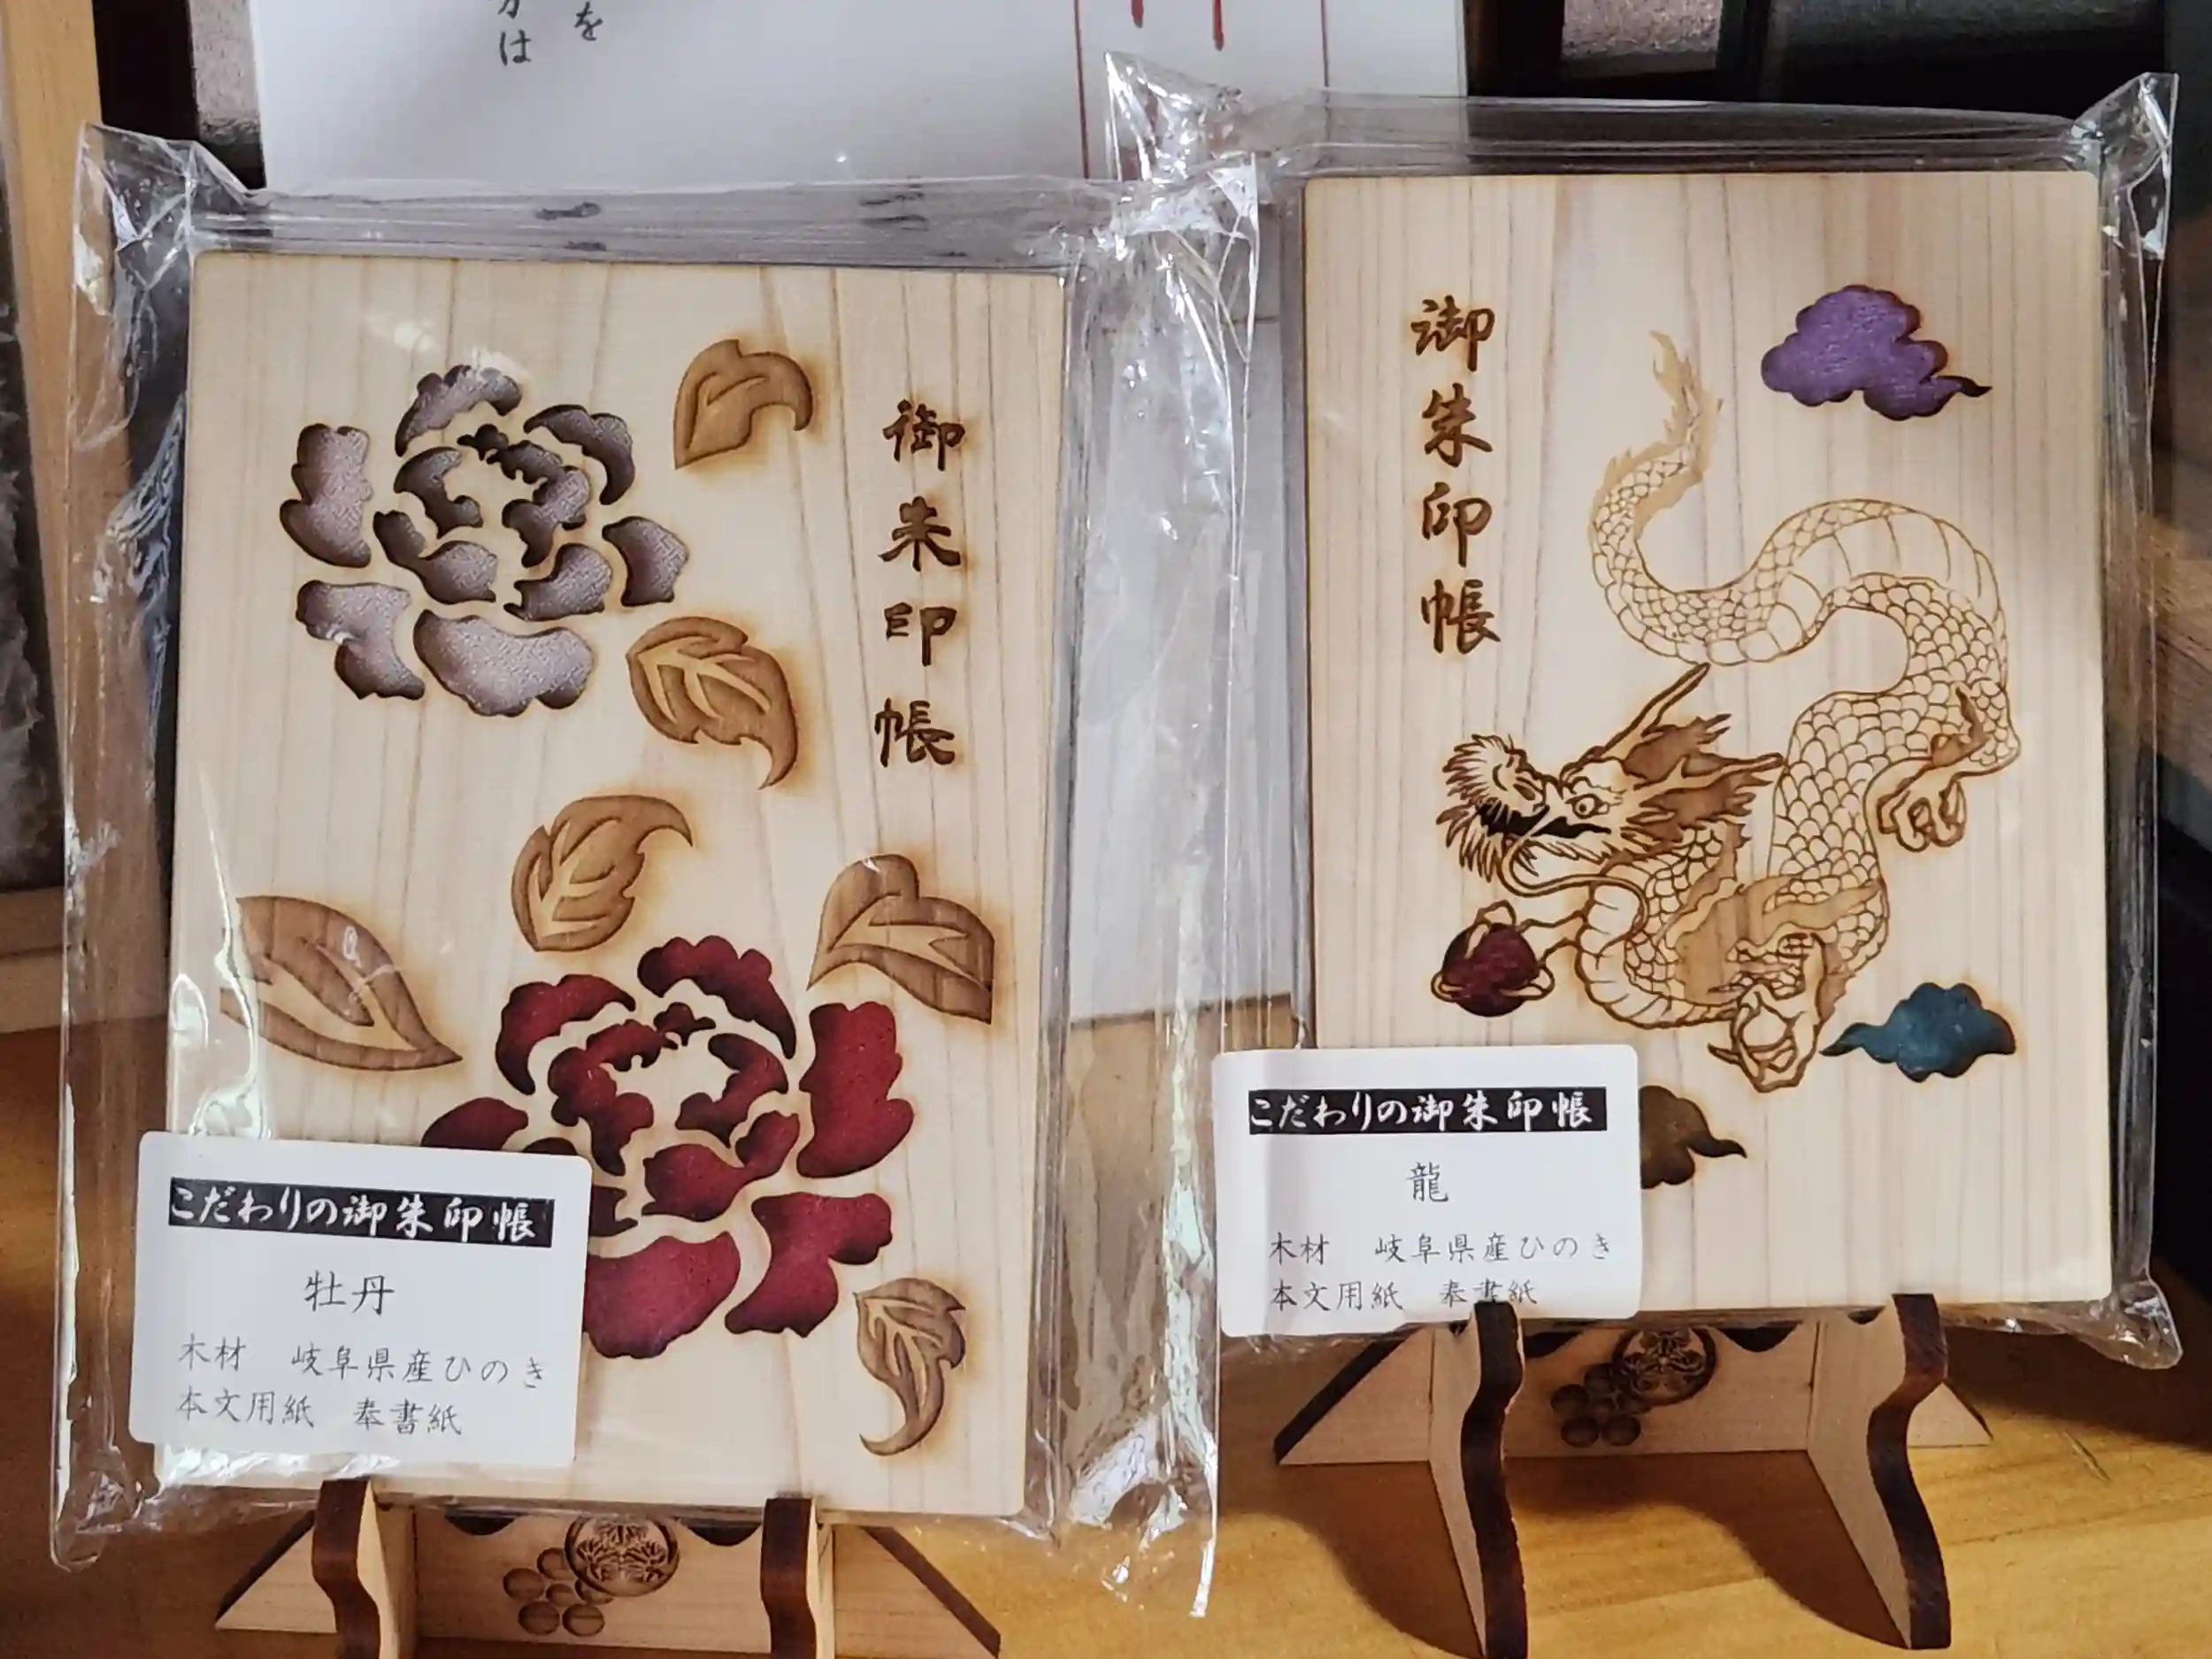 を
は
御朱印帳
こだわりの御朱印帳
牡丹
木材 岐阜県産ひのき
本文用紙 奉書紙
御朱印帳
こだわりの御朱印帳
龍
木材 岐阜県産ひのき
本文用紙 奉書紙